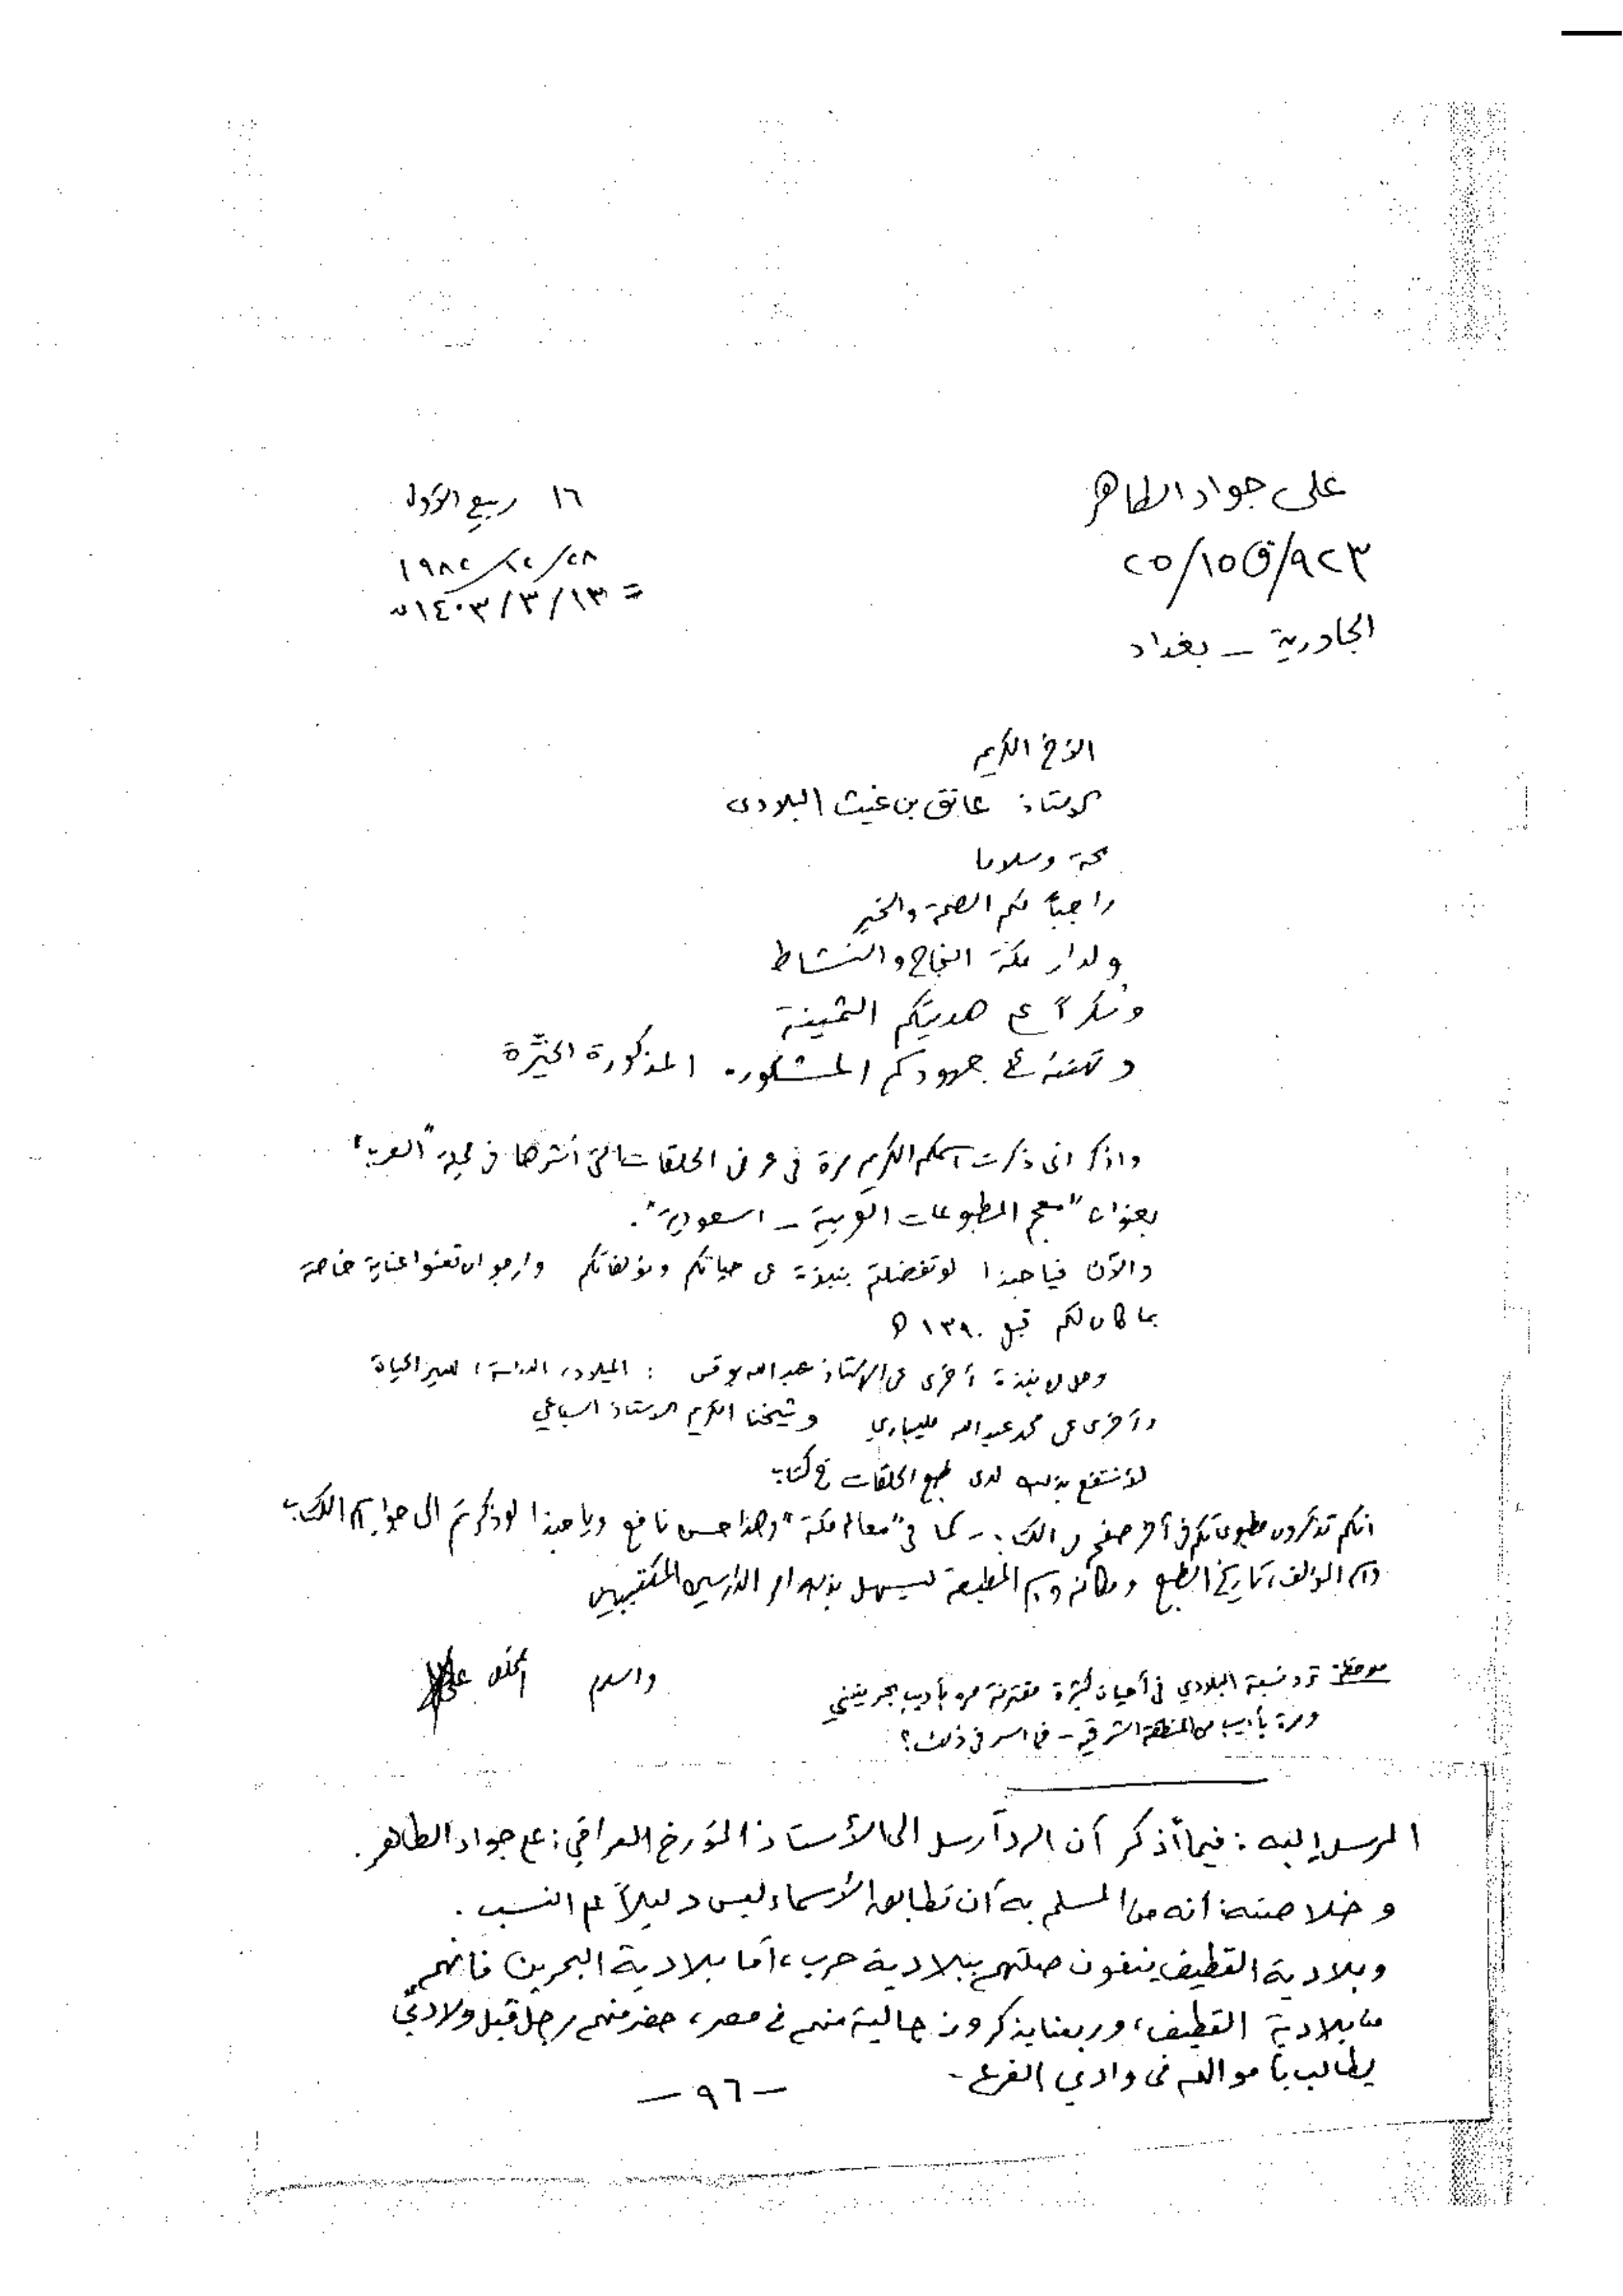 علي جواد الطاهر
٩٢٣/ق١٥/٢٥
الجادرية – بغداد
١٦ ربيع الأول
٢٨/١٢/١٩٨٢
= ١٣/٣/١٤٠٣هـ
الأخ الكريم
الاستاذ عاتق بن غيث البلادي
تحية وسلاما
راجياً لكم الصحة والخير
ولدار مكة النجاح والنشاط
وشكراً على هديتكم الثمينة
وتهنئة على جهودكم المشكورة المذكورة الخيّرة
واذكر اني ذكرت اسمكم الكريم مرة في عرض الحلقات التي أنشرها في مجلة "العرب"
بعنوان "معجم المطبوعات العربية – السعودية".
والآن فيا حبذا لو تفضلتم بنبذة عن حياتكم ومؤلفاتكم وارجو ان تعنوا عناية خاصة
بما كان لكم قبل ١٣٩٠ هـ
وهل لي بنبذة أخرى عن الاستاذ عبدالله بوقس : الميلاد، الدراسة، سير الحياة
وأخرى عن محمد عبدالله مليباري وشيخنا الكريم الاستاذ السباعي
لأنتفع بذلك لدى طبع الحلقات في كتاب
انكم تذكرون مطبوعاتكم في آخر صفحة من الكتاب – كما في "معالم مكة" وهذا حسن نافع ويا حبذا لو ذكرتم الى جوار اسم الكتاب
واسم المؤلف، تاريخ الطبع ومكانه واسم المطبعة ليسهل بذلك امر الدارسين المنقبين
والسلام المخلص علي
ملاحظة: ترد نسبة البلادي في أحيان كثيرة مقترنة مرة بأديب بحريني
ومرة بأديب من المنطقة الشرقية – فما السر في ذلك؟
المرسل إليه : فيما أذكر أن الرد أرسل الى الأستاذ المؤرخ العراقي : علي جواد الطاهر .
وخلاصته: أنه من المسلم به أن تطابق الأسماء ليس دليلاً على النسب .
وبلادية القطيف ينفون صلتهم ببلادية حرب، أما بلادية البحرين فانهم
من بلادية القطيف، وربعنا يذكرون جالية منهم في مصر، حضر منهم رجل قبل ولادتي
يطالب بأمواله في وادي الفرع -
– ٩٦ –